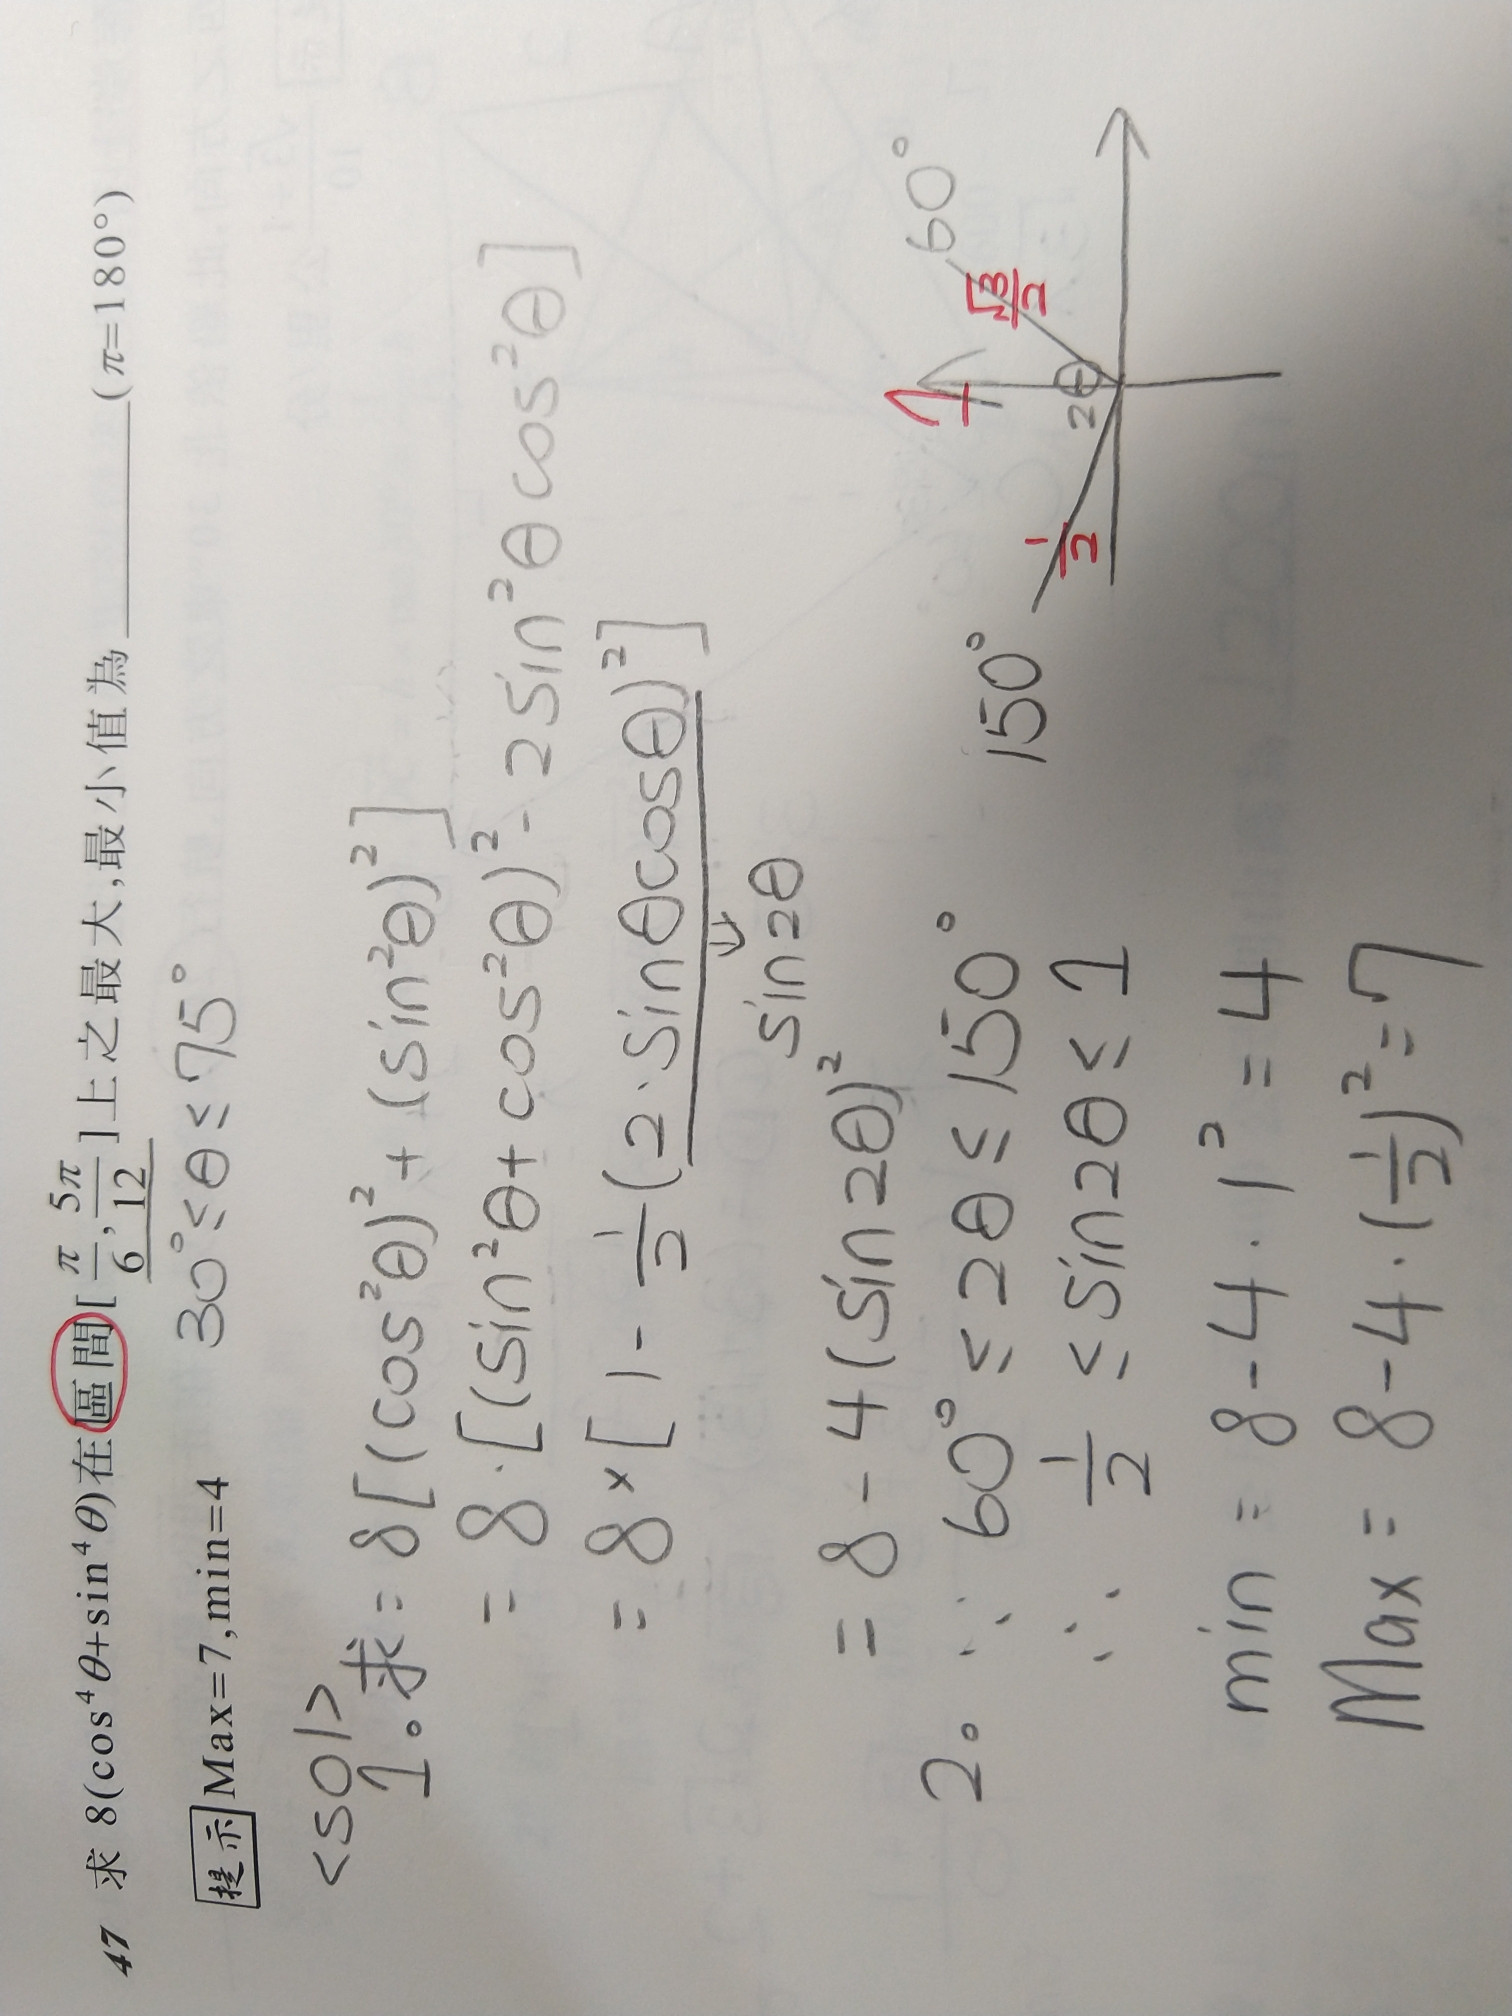 47 求 8(cos⁴θ+sin⁴θ)在區間[π/6, 5π/12]上之最大,最小值為______(π=180°)
提示 Max=7,min=4 30°≤θ≤75°
<sol>
1. 求= 8[(cos²θ)²+(sin²θ)²]
= 8·[(sin²θ+cos²θ)²-2sin²θcos²θ]
= 8×[1-1/2(2·sinθcosθ)²]
⇓
sin2θ
= 8-4(sin2θ)²
2. ∵ 60°≤2θ≤150°
∴ 1/2 ≤ sin2θ ≤ 1
min = 8-4·1² = 4
Max = 8-4·(1/2)²=7
150°
1/2
1
2θ
√3/2
60°